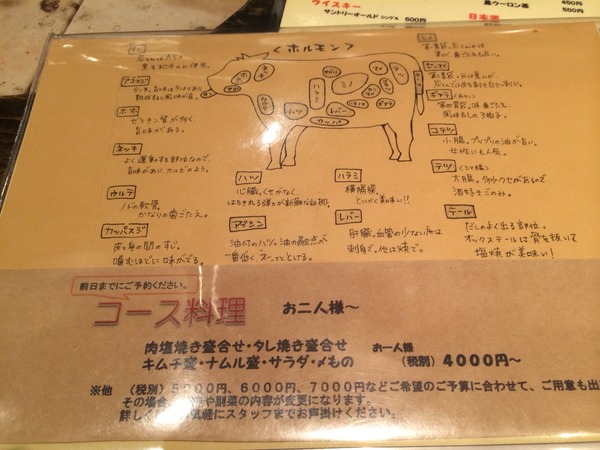 ウイスキー
サントリーオールド シングル 500円
黒ウーロン茶 450円
日本酒 500円
<ホルモン>
ハラミ
ミノ
ハツ
レバー
カッパ
アゴスジ
ホホ
ゼラチン質が多く
旨味がある。
ネッキ
よく運動する部位なので、
旨味があり、カルビのよう。
ウルテ
ノドの軟骨。
かなりの歯ごたえ。
カッパスジ
皮と身の間のすじ。
噛むほどに味がでる。
ハツ
心臓。くせがなく、
はちきれる弾力が新鮮な証拠。
アブシン
油付のハツ。油の融点が
一番低く、スーッととける。
ハラミ
横隔膜。
とにかく美味い!!
レバー
肝臓。血管の少ない所は
刺身で。他は焼で。
ミノ
センマイ
ギアラ
コテツ
小腸。プリプリの油が旨い。
女性にも人気。
テツ (シマ腸)
大腸。多少クセがあるので
酒好きごのみ。
テール
だしのよく出る部位。
オックステールは骨を抜いて
塩焼が美味い!
前日までにご予約ください。
コース料理 お二人様〜
肉塩焼き盛合せ・タレ焼き盛合せ お一人様
キムチ盛・ナムル盛・サラダ・〆もの (税別) 4000円〜
※他 (税別) 5000円、6000円、7000円などご希望のご予算に合わせて、ご用意も出
その場合、 や副菜の内容が変更になります。
詳しくは 気軽にスタッフまでお声掛けください。